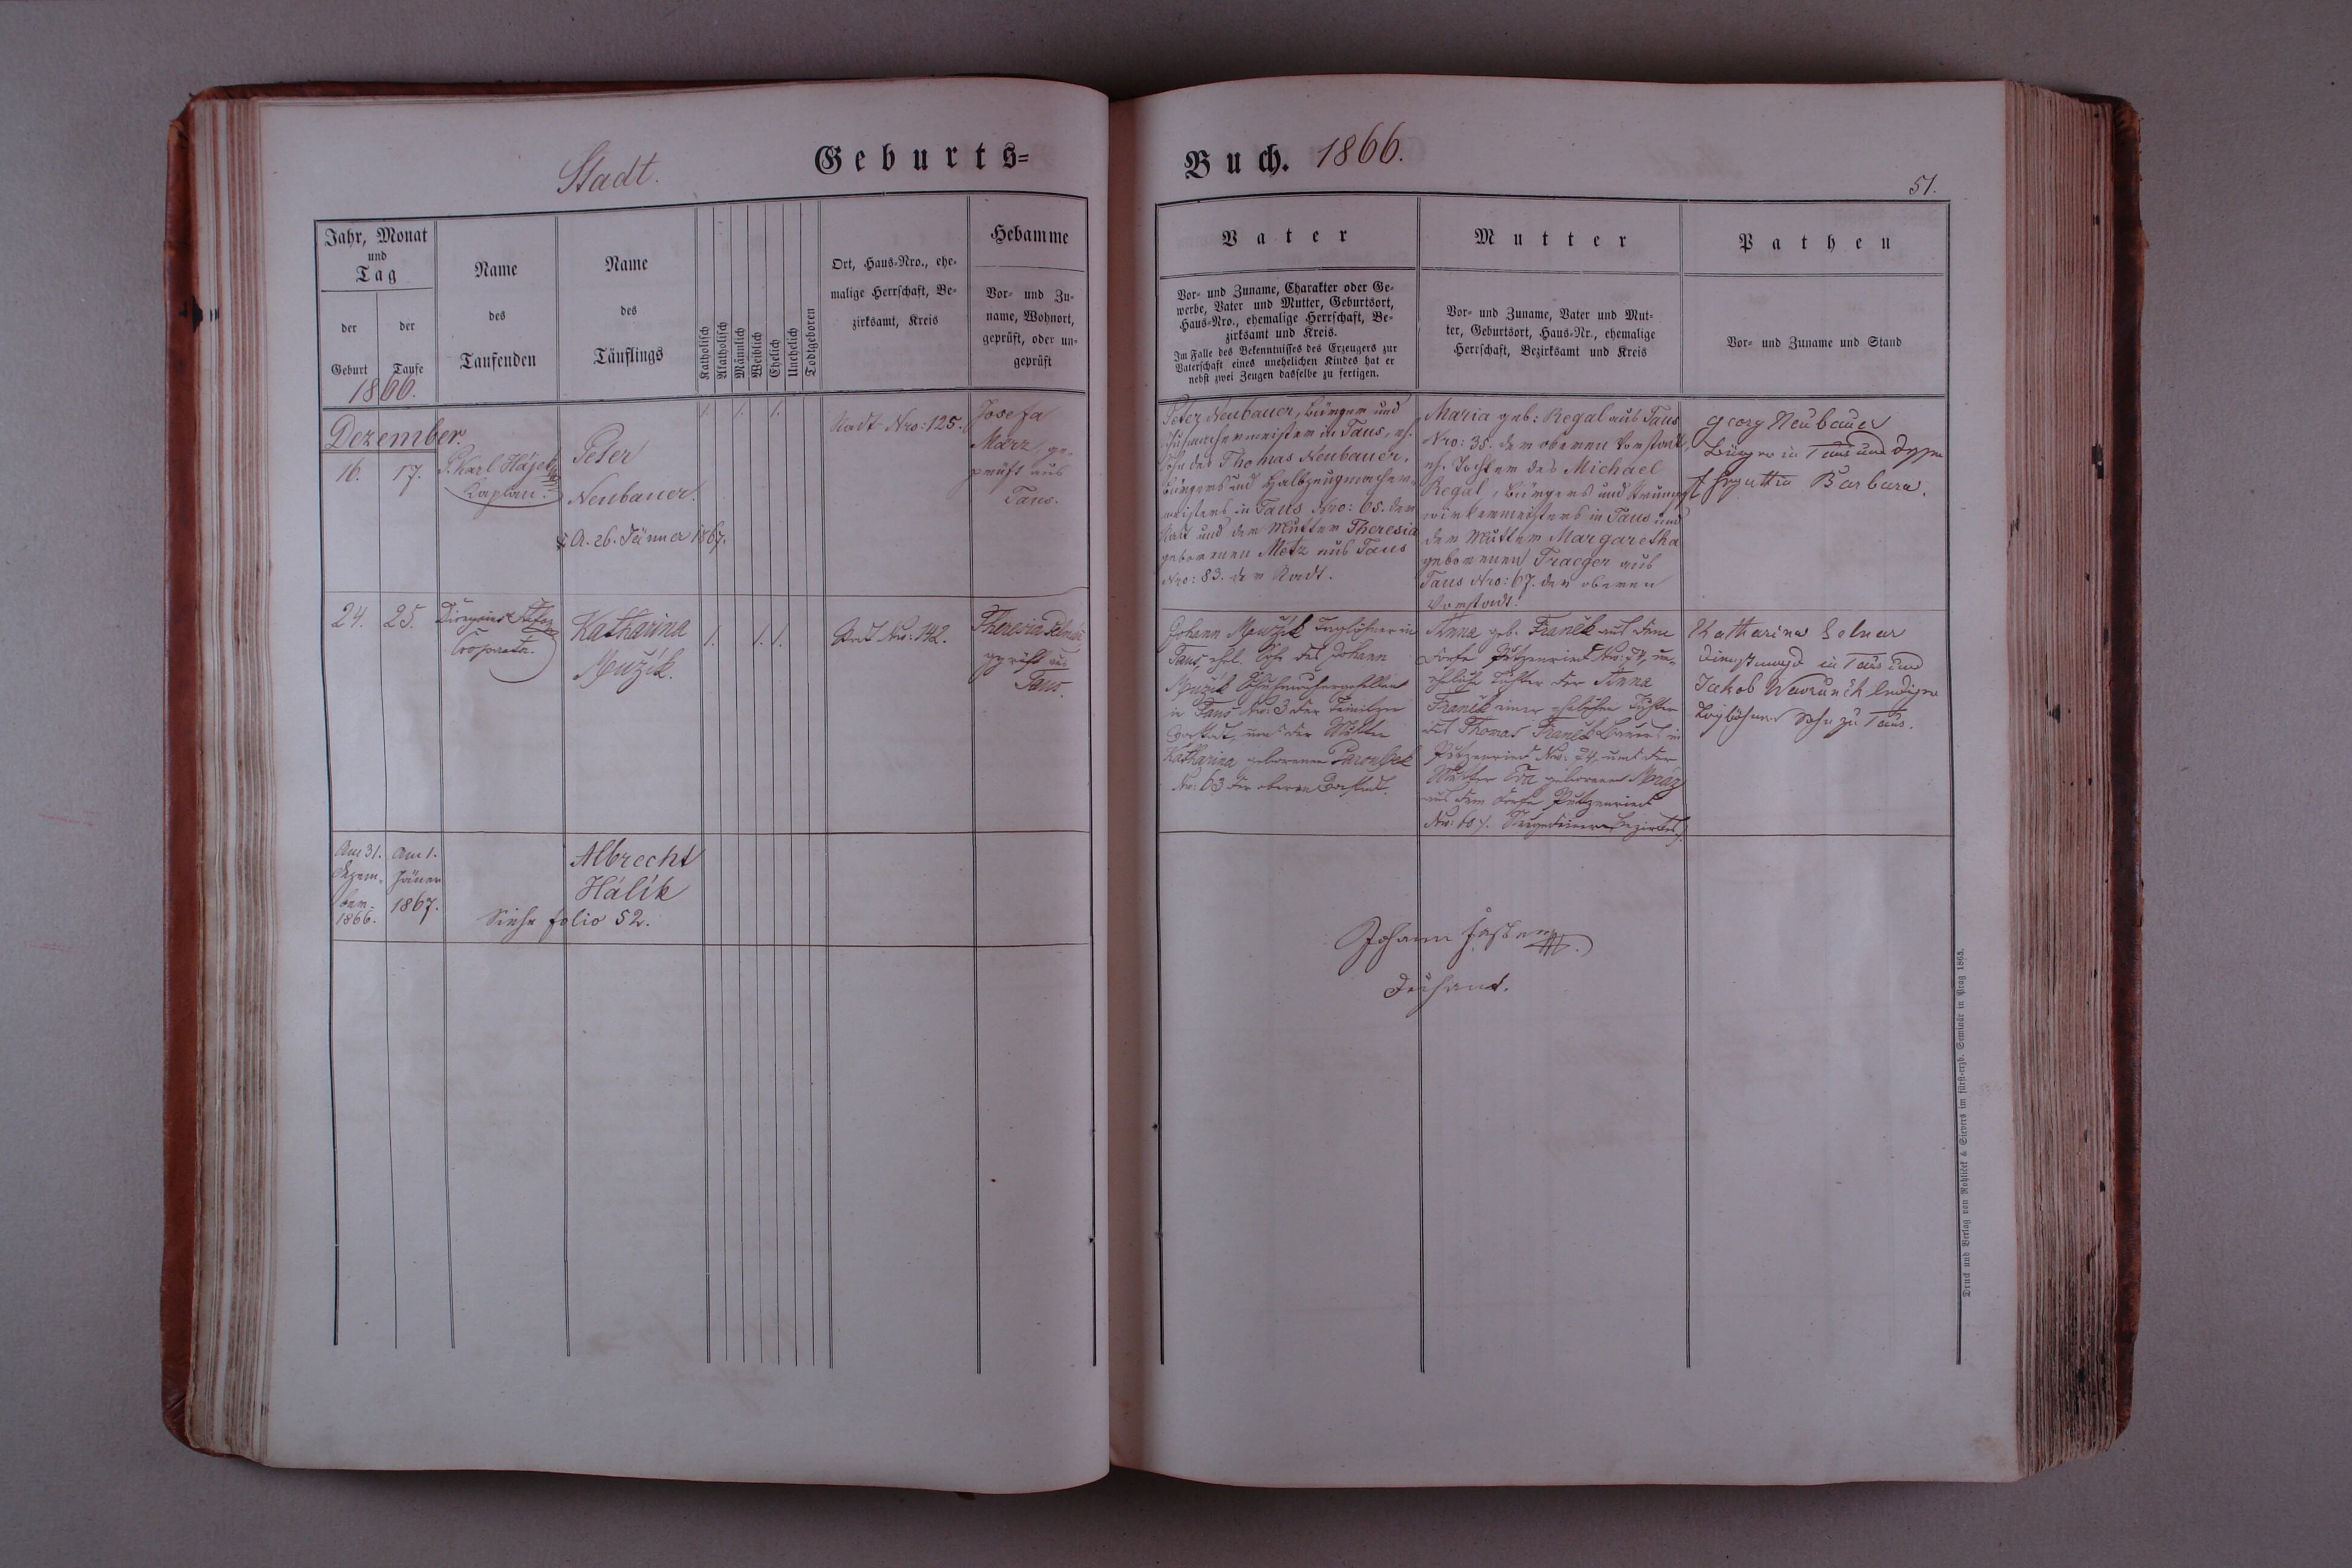 Stadt.
Geburts=
Buch. 1866.
51.
Jahr, Monat
und
Tag
der
Geburt
der
Taufe
1866.
Name
des
Taufenden
Name
des
Täuflings
Katholisch
Akatholisch
Männlich
Weiblich
Ehelich
Unehelich
Todtgeboren
Ort, Haus-Nro., ehe-
malige Herrschaft, Be-
zirksamt, Kreis
Hebamme
Vor- und Zu-
name, Wohnort,
geprüft, oder un-
geprüft
Vater
Vor- und Zuname, Charakter oder Ge-
werbe, Vater und Mutter, Geburtsort,
Haus-Nro., ehemalige Herrschaft, Be-
zirksamt und Kreis.
Im Falle des Bekenntnisses des Erzeugers zur
Vaterschaft eines unehelichen Kindes hat er
nebst zwei Zeugen dasselbe zu fertigen.
Mutter
Vor- und Zuname, Vater und Mut-
ter, Geburtsort, Haus-Nr., ehemalige
Herrschaft, Bezirksamt und Kreis
Pathen
Vor- und Zuname und Stand
Dezember.
16.
17.
P. Karl Hájek
Kaplan.
Peter
Neubauer.
† A. 26. Jänner 1867.
1.
1.
1.
Stadt Nro: 125.
Josefa
März, ge-
prüft aus
Taus.
Peter Neubauer, Bürger und
meister in Taus, eh.
Sohn des Thomas Neubauer,
Bürgers und Halbzeugmacher-
meisters in Taus Nro: 65. der
Stadt und der Mutter Theresia
geborenen Metz aus Taus
Nro: 83. der Stadt.
Maria geb: Regal aus Taus
Nro: 35. der oberen Vorstadt,
eh. Tochter des Michael
Regal, Bürgers und Strumpf
wirkermeisters in Taus und
der Mutter Margaretha
geborenen Traeger aus
Taus Nro: 67. der oberen
Vorstadt.
Georg Neubauer
Bürger in Taus und dessen
Ehegattin Barbara.
24.
25.
Cooperator.
Katharina
Mužík.
1.
1.
1.
Stadt Nro: 142.
Theresia
geprüft aus
Taus.
Johann Mužík Taglöhner in
Taus, ehel. Sohn des Johann
Mužík Schuhmachergesellen
in Taus Nro: 3 der
Vorstadt, und der Mutter
Katharina geborenen
Nro: 63 der oberen Vorstadt.
Anna geb. Franěk aus dem
Dorfe Putzenried Nro: 74, un-
eheliche Tochter der Anna
Franěk einer ehelichen Tochter
des Thomas Franěk Bauers in
Putzenried Nro: 74, und der
Mutter geborenen
aus dem Dorfe Putzenried
Katharina
Dienstmagd in Taus und
Jakob lediger
Taglöhner Sohn zu Taus.
Am 31.
Dezem-
ber.
1866.
Am 1.
Jäner
1867.
Albrecht
Hálík
Siehe folio 52.
Johann
Dechant.
Druck und Verlag von Rohliček & Sievers im fürst-erzb. Seminär in Prag 1863.